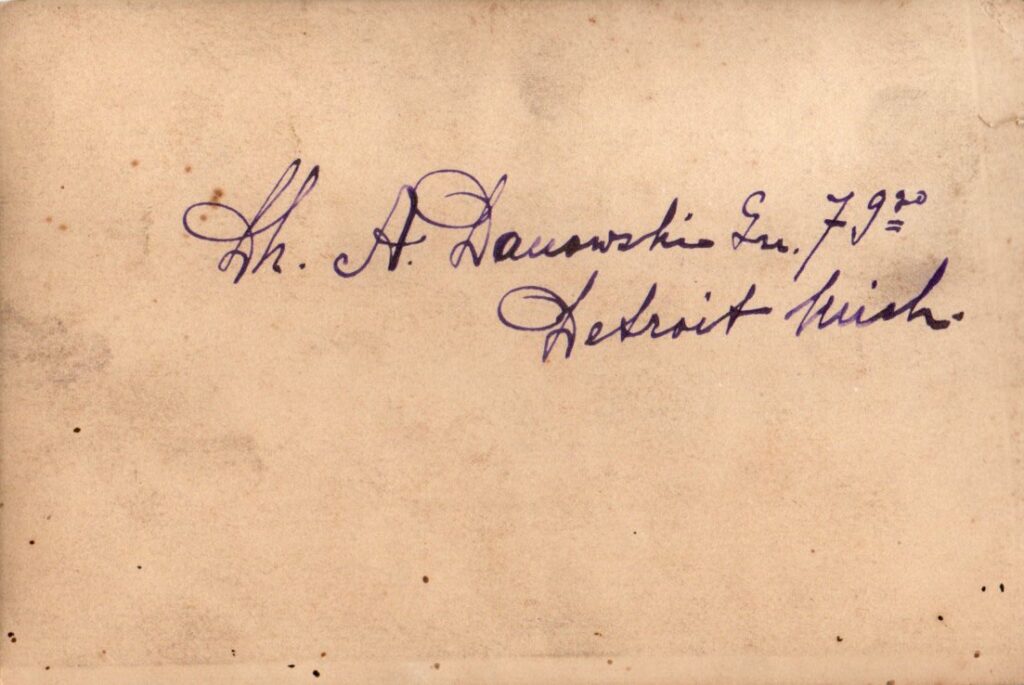 Dh. A. Danowski Gn. 79²⁰
Detroit Mich.